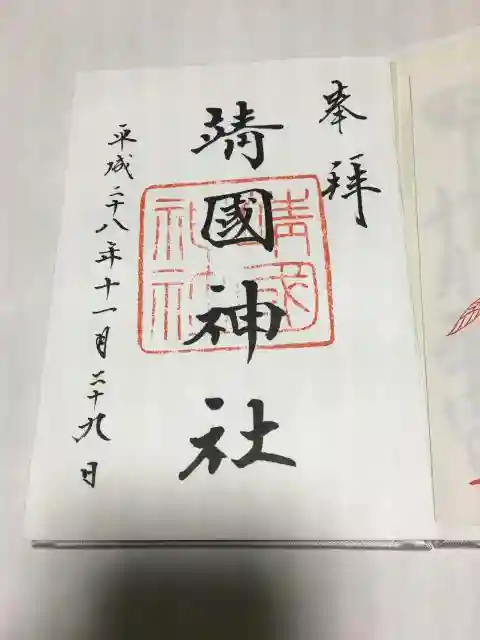 奉拝
靖國神社
靖國神社
平成二十八年十一月二十九日